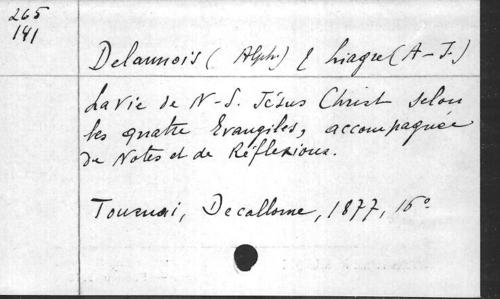 265
141
Delaunois ( Alph.) & Liagre (A-J.)
La Vie de N-S. Jésus Christ selon
les quatre Evangiles, accompagnée
de Notes et de Réflexions.
Tournai, Decallonne, 1877, 16°